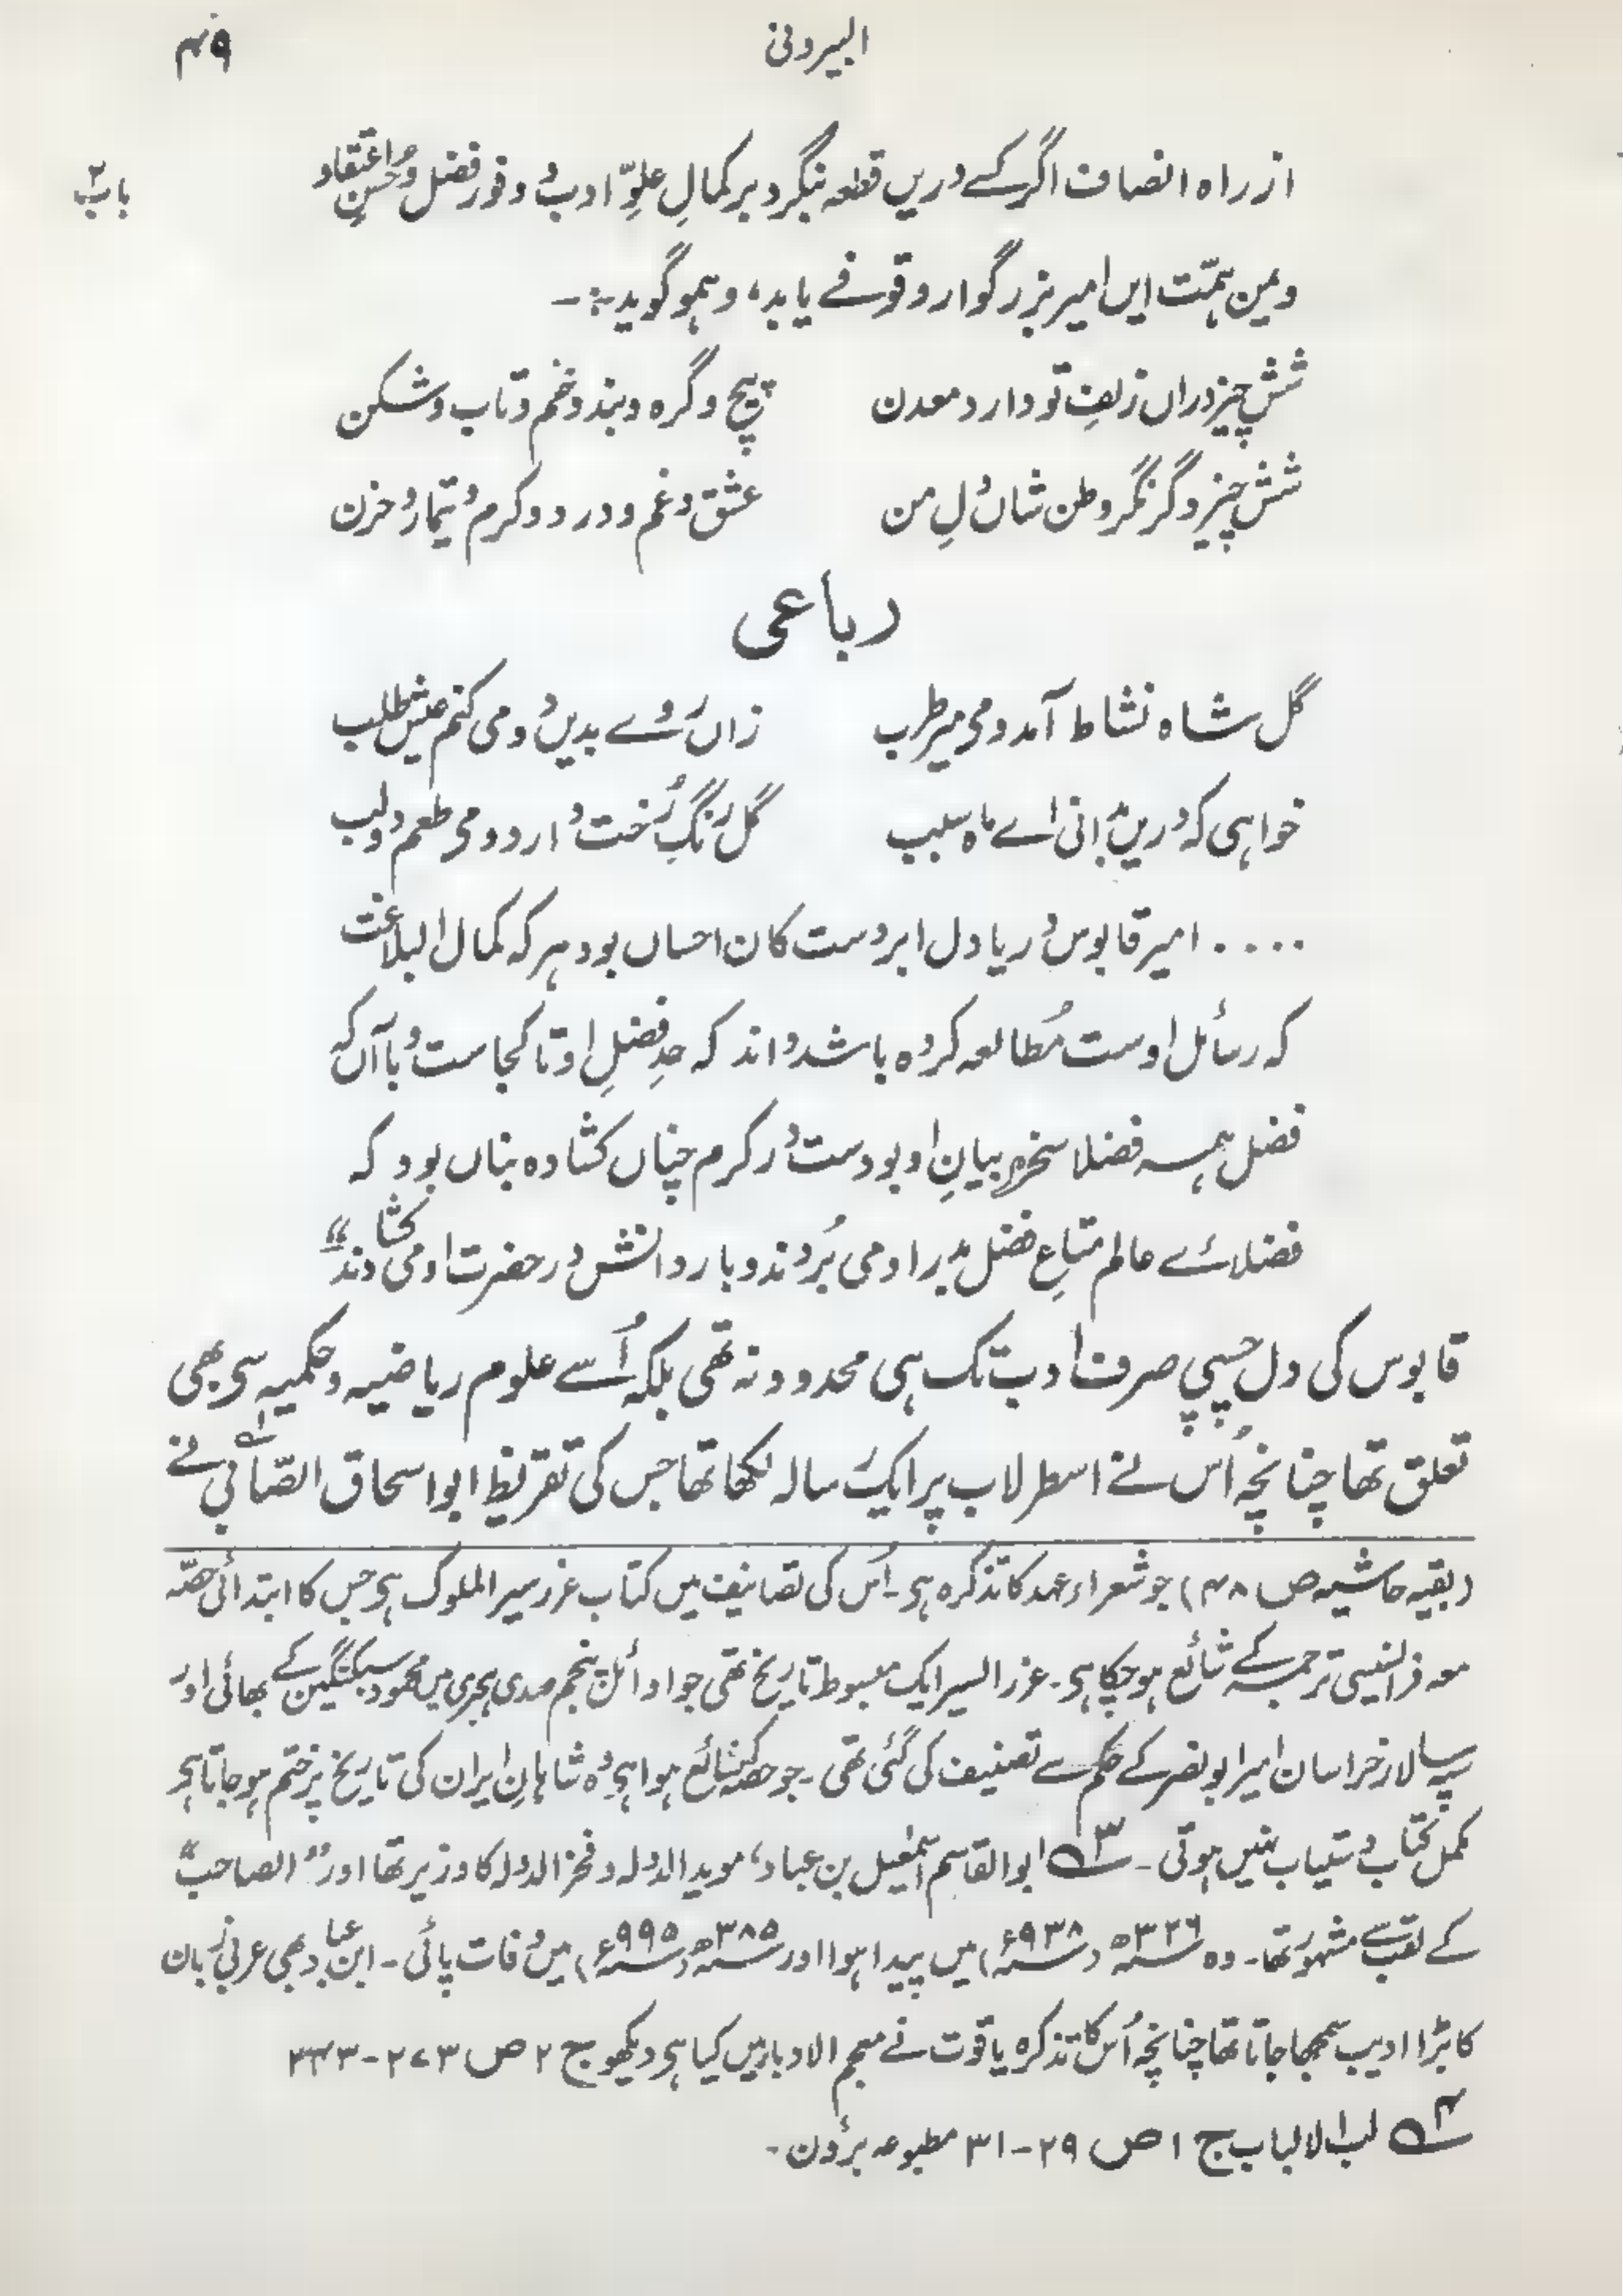 البیرونی
۴۹
باب ۲
از راہ انصاف اگر کسے دریں قطعہ بنگرد بر کمالِ علوِّ ادب و وفور فضل و حُسنِ اعتقاد
و یمن ہمّت ایں امیر بزرگوار وقوفے یابد، و ہمو گوید:۔
شش چیز دراں زلفِ تو دارد معدن پیچ و گرہ و بند و خم و تاب و شکن
شش چیز دگر نگر وطن شاں دلِ من عشق و غم و درد و کرم و تیمار و حزن
رباعی
گل شاہ نشاط آمد و می میر طرب زاں روے بدیں دو می کنم عیش طلب
خواہی کہ دریں بدانی اے ماہ سبب گل رنگِ رُخت دارد و می طعم دو لب
.... امیر قابوس دریا دل ابر دست کان احساں بود ہر کہ کمال البلاغت
کہ رسائل اوست مُطالعہ کردہ باشد داند کہ حدِ فضلِ او تا کجاست و با آں کہ
فضل ہمہ فضلا سخرہ بیانِ او بود دست در کرم چناں کشادہ بناں بود کہ
فضلائے عالم متاعِ فضل بدر او می بُردند و بار دانش در حضرت او می کشادند"
قابوس کی دل چسپی صرف ادب تک ہی محدود نہ تھی بلکہ اُسے علوم ریاضیہ و حکمیہ سی بھی
تعلق تھا چنانچہ اُس نے اسطرلاب پر ایک رسالہ لکھا تھا جس کی تقریظ ابو اسحاق الصّابی نے
(بقیہ حاشیہ ص ۴۸) جو شعراء عہد کا تذکرہ ہی۔ اُس کی تصانیف میں کتاب غرر سیر الملوک ہی جس کا ابتدائی حصّہ
معہ فرانسیسی ترجمہ کے شائع ہو چکا ہی۔ غرر السیر ایک مبسوط تاریخ تھی جو اوائل پنجم صدی ہجری میں محمود سبکتگین کے بھائی اور
سپہ سالار خراسان امیر ابو نصر کے حکم سے تصنیف کی گئی تھی۔ جو حصّہ شائع ہوا ہی وُہ شاہانِ ایران کی تاریخ پر ختم ہو جاتا ہی
مکمل کتاب دستیاب نہیں ہوتی۔ ۳ ابو القاسم اسمٰعیل بن عباد، موید الدولہ و فخر الدولہ کا وزیر تھا اور "الصاحب"
کے لقب سے مشہور تھا۔ وہ ۳۲۶ھ (۹۳۸ء) میں پیدا ہوا اور ۳۸۵ھ (۹۹۵ء) میں وفات پائی۔ ابن عباد بھی عربی زبان
کا بڑا ادیب سمجھا جاتا تھا چنانچہ اُس کا تذکرہ یاقوت نے معجم الادباء میں کیا ہی دیکھو ج ۲ ص ۲۷۳-۳۴۳
۴ لب الالباب ج ۱ ص ۲۹-۳۱ مطبوعہ برؤن۔